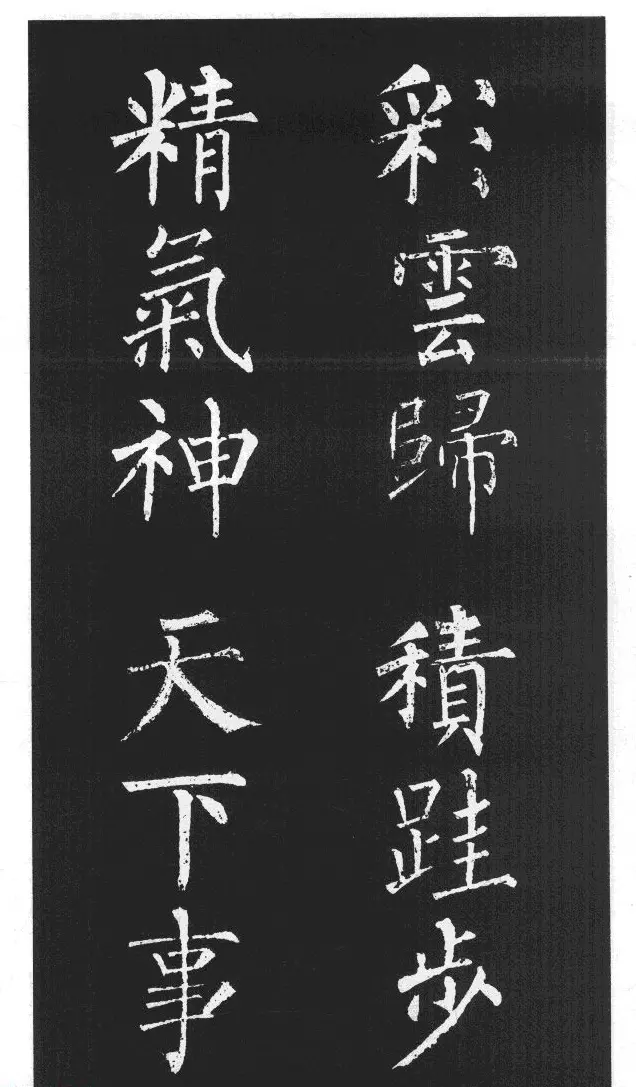 彩雲歸 積跬步
精氣神 天下事